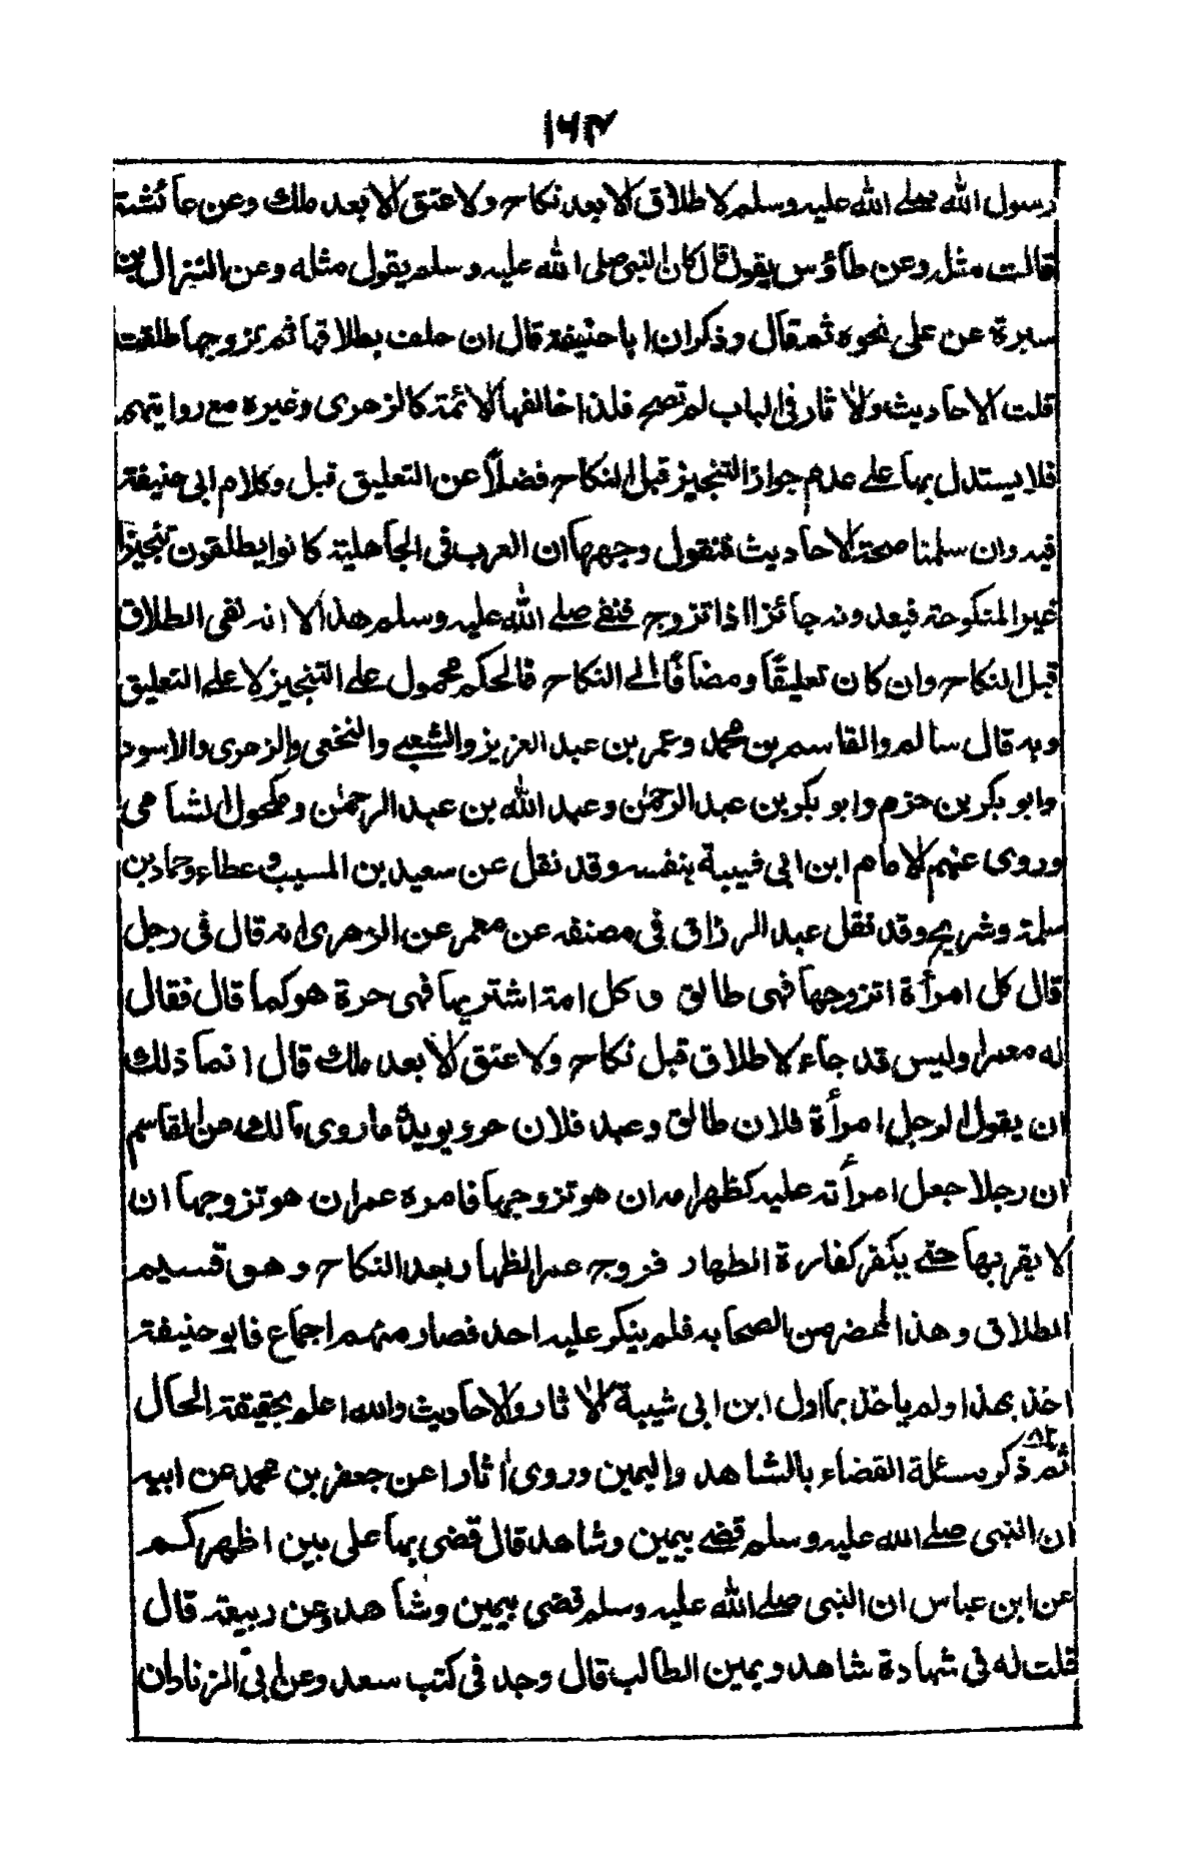 ۱۶۴
رسول الله صلے الله عليه وسلم لا طلاق الا بعد نكاح ولا عتق الا بعد ملك وعن عائشة
قالت مثله وعن طاؤس يقول قال كان النبي صلى الله عليه وسلم يقول مثله وعن النزال بن
سبرة عن علي نحوه ثم قال وذكر ان ابا حنيفة قال ان حلف بطلاقها ثم يزوجها طلقت
قلت الاحاديث والاثار في الباب لم تصح فلذا خالفها الائمة كالزهري وغيره مع روايتهم
فلا يستدل بها على عدم جواز التنجيز قبل النكاح فضلاً عن التعليق قبل وكلام ابي حنيفة
فيه وان سلمنا صحة الاحاديث فنقول وجهها ان العرب في الجاهلية كانوا يطلقون تنجيزا
غير المنكوحة فيعدونه جائزا اذا تزوج فنفے صلے الله عليه وسلم هذا الا انه نفى الطلاق
قبل النكاح وان كان تعليقًا ومضافًا الے النكاح فالحكم محمول علے التنجيز لا علے التعليق
وبه قال سالم والقاسم بن محمد وعمر بن عبد العزيز والشعبے والنخعي والزهري والاسود
وابو بكر بن حزم وابو بكر بن عبد الرحمٰن وعبد الله بن عبد الرحمٰن ومكحول الشامي
وروى عنهم الامام ابن ابي شيبة بنفسه وقد نقل عن سعيد بن المسيب وعطاء وحماد بن
سلمة وشريح وقد نقل عبد الرزاق في مصنفه عن معمر عن الزهري انه قال في رجل
قال كل امرأة اتزوجها فهي طالق وكل امة اشتريها فهي حرة هو كما قال فقال
له معمر اوليس قد جاء لا طلاق قبل نكاح ولا عتق الا بعد ملك قال انما ذلك
ان يقول الرجل امرأة فلان طالق وعبد فلان حر ويويده ما روى مالك من القاسم
ان رجلا جعل امرأته عليه كظهر امه ان هو تزوجها فامره عمر ان هو تزوجها ان
لا يقربها حتے يكفر كفارة الظهار فروجه عمر الظهار بعد النكاح وهو قسيم
الطلاق وهذا المحضر من الصحابه فلم ينكر عليه احد فصار منهم اجماع فابو حنيفة
اخذ بهذا ولم ياخذ بما اول ابن ابي شيبة الاثار والاحاديث والله اعلم بحقيقة الحال
ثم ذكر مسئلة القضاء بالشاهد واليمين وروى اثارا عن جعفر بن محمد عن ابيه
ان النبي صلے الله عليه وسلم قضے بيمين وشاهد قال قضى بها علي بين اظهركم
عن ابن عباس ان النبي صلے الله عليه وسلم قضى بيمين وشاهد وعن ربيعة قال
قلت له في شهادة شاهد ويمين الطالب قال وجد في كتب سعد وعن ابي الزناد ان